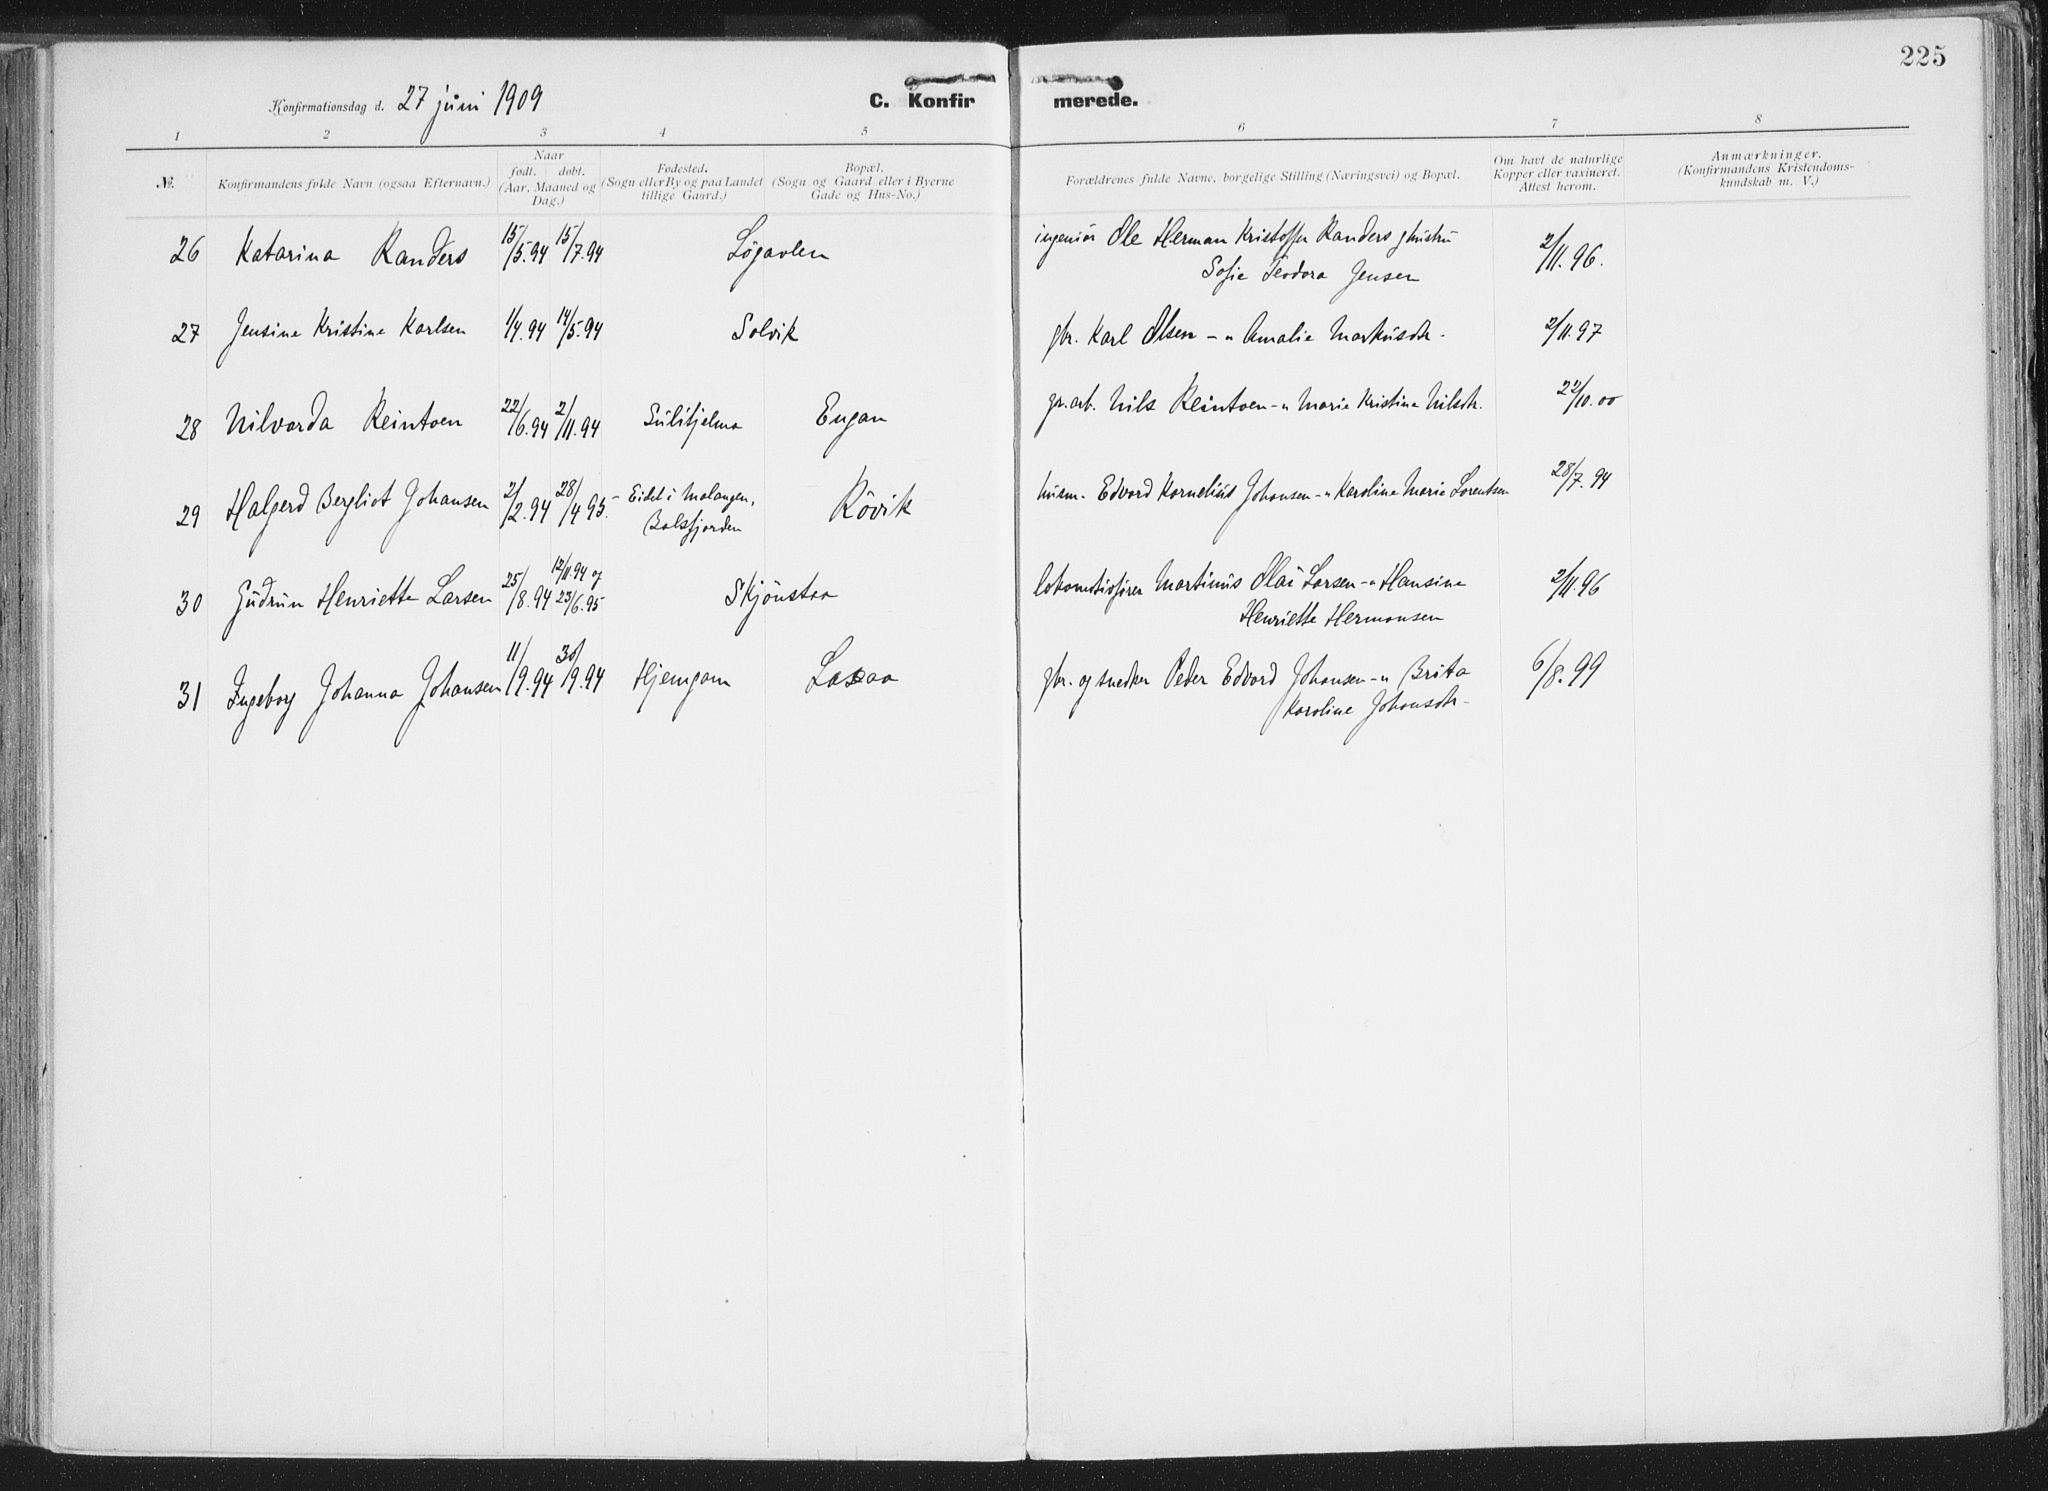 225
Konfirmationsdag d. 27 juni 1909
C. Konfir merede.
1 2 3 4 5 6 7 8
№.
Konfirmandens fulde Navn (ogsaa Efternavn.)
Naar
født. døbt.
(Aar, Maaned og Dag.)
Fødested.
(Sogn eller By og paa Landet tillige Gaard.)
Bopæl.
(Sogn og Gaard eller i Byerne Gade og Hus-No.)
Forældrenes fulde Navne, borgelige Stilling (Næringsvei) og Bopæl.
Om havt de naturlige Kopper eller vaxineret. Attest herom.
Anmærkninger.
(Konfirmandens Kristendomskundskab m. V.)
26 Katarina Randers 15/5.94 15/7.94 Løgavlen ingeniør Ole Herman Kristoffer Randers g hustru 2/11.96.
Sofie Teodora Jensen
27 Jensine Kristine Karlsen 1/4.94 14/5.94 Solvik gbr. Karl Olsen - " Amalie Markusdtr. 2/11.97
28 Nilvarda Reintoen 22/6.94 2/11.94 Sulitjelma Engan gr.arb. Nils Reintoen - " Marie Kristine Nilsdtr. 22/10.00
29 Halgerd Bergliot Johansen 2/2.94 28/4.95. Eidet i Malangen, Røvik husm. Edvard Kornelius Johansen - " Karoline Marie Lorentsen 28/7.94
Balsfjorden
30 Gudrun Henriette Larsen 25/8.94 12/11.94 og 23/6.95 Skjønstaa lokomotivfører Martinus Olai Larsen - " Hansine 2/11.96
Henriette Hermansen
31 Ingeborg Johanna Johansen 11/9.94 30/9.94 Hjemgam Laxaa gbr. og snedker Peder Edvard Johansen - " Brita 6/8.99
Karoline Johansdtr.